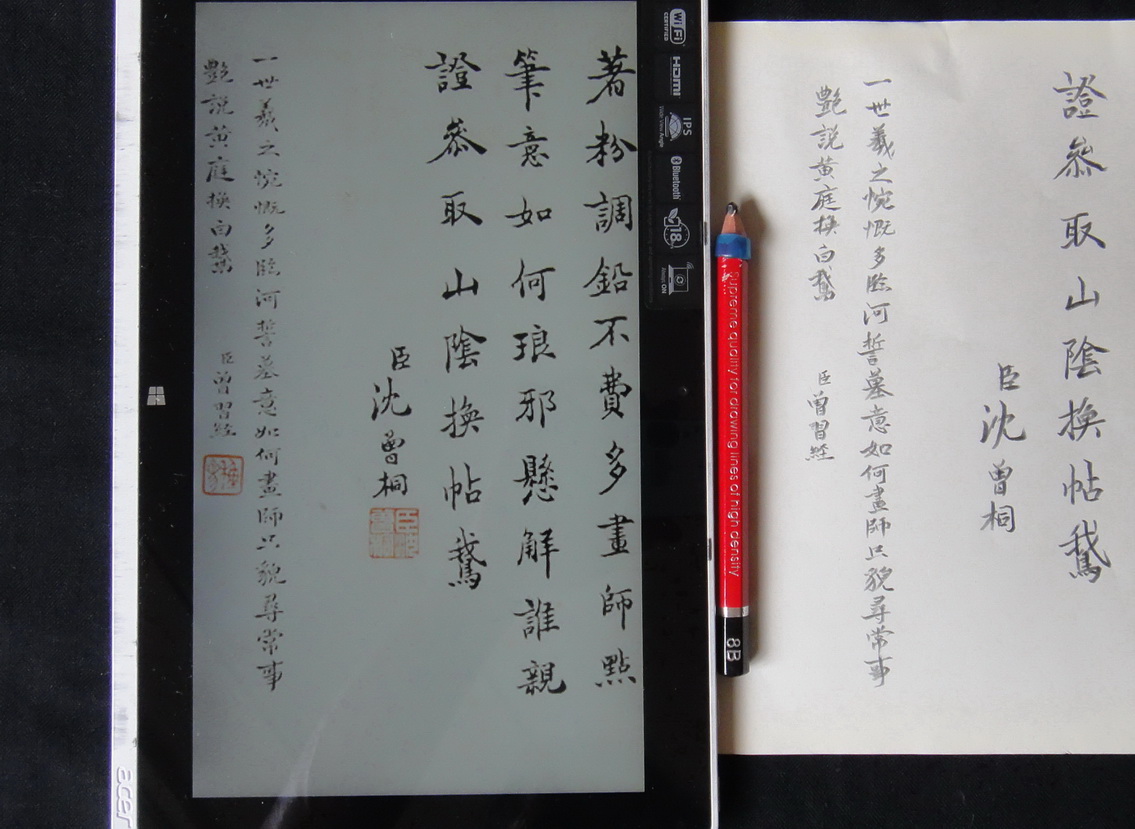 著粉調鉛不費多畫師點
筆意如何琅邪懸解誰親
證叅取山陰換帖鵞
臣沈曾桐
一世羲之惋慨多臨河誓墓意如何畫師只貌尋常事
艷説黄庭換白鵞
臣曾習經
acer
WiFi
CERTIFIED
HDMI
IPS
Bluetooth
18
Supreme quality for drawing lines of high density
8B
證叅取山陰換帖鵞
臣沈曾桐
一世羲之惋慨多臨河誓墓意如何畫師只貌尋常事
艷説黄庭換白鵞
臣曾習經